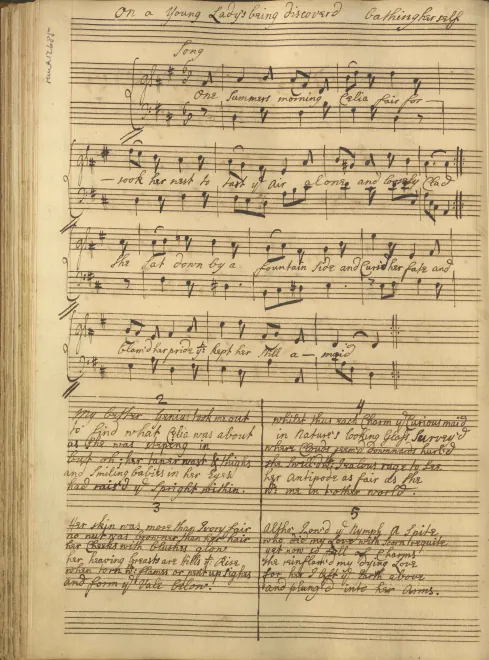 On a Young Lady's being discover'd bathing herself
Song
One Summers morning Celia fair for
sook her nest to tast ye Air alone and loosely Clad
She sat down by a fountain side and Curs'd her fate and
blam'd her pride yt kept her still a maid
2
My better Genius took me out
to find what Celia was about
as she was steping in
but oh her taper wast & thighs
and Smiling babies in her Eyes
had rais'd ye Spright within.
3
Her skin was more than Ivory fair
no nut was browner than her hair
her Cheeks with blushes glow
her heaving breasts are hills yt Rise
when torn by flames or
and form ye Vale below.
4
Whilst thus rash Charm ye Curious maid
in Nature's looking Glass Survey'd
where Clouds seem'd downwards hurl'd
she swell'd Jealous rage to See
her Antipode as fair as she
in t'other world.
5
Altho I ow'd ye Nymph A Spite
who did my Love with Scorn requite
yet now so full of Charms
She reinflam'd my dying Love
for her I left ye Earth above
and plung'd into her Arms.